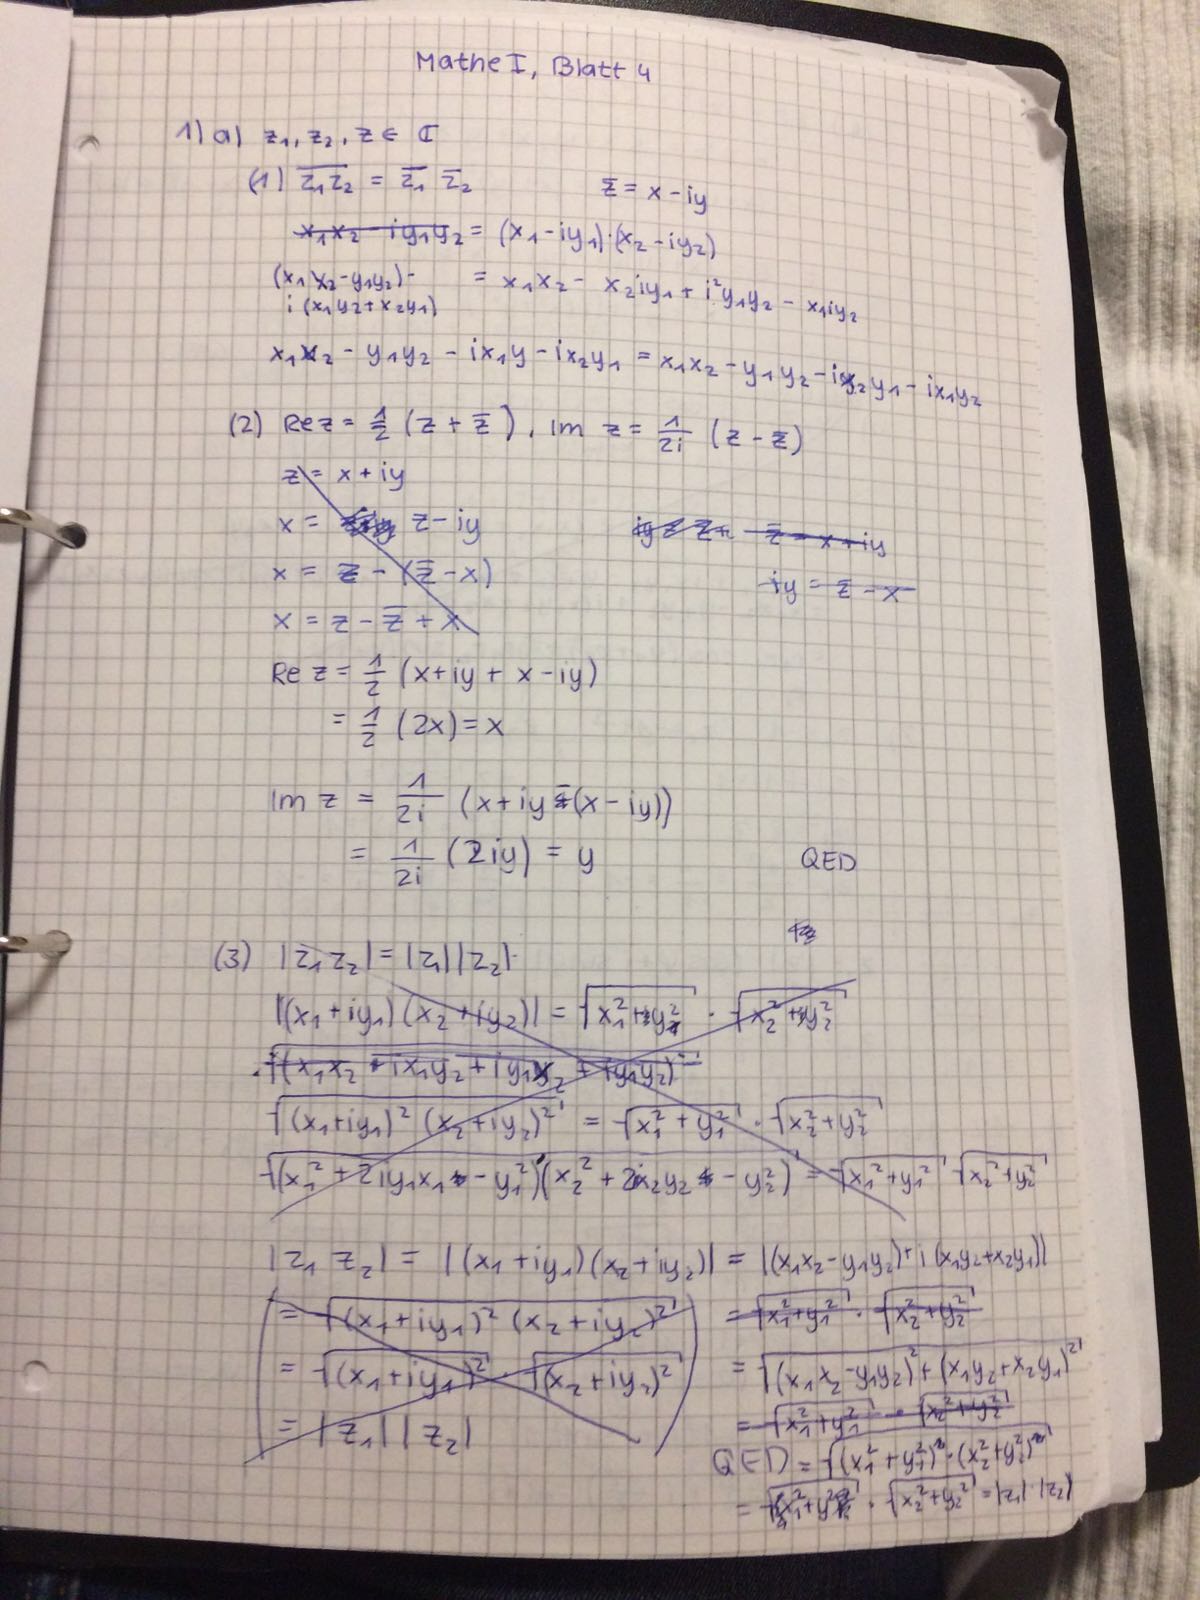 Mathe I, Blatt 4
1) a) z₁, z₂, z ∈ ℂ
(1) \overline{z₁z₂} = z̄₁ z̄₂    z̄ = x - iy
x₁x₂ - iy₁y₂ = (x₁ - iy₁)·(x₂ - iy₂)
(x₁x₂ - y₁y₂) - = x₁x₂ - x₂iy₁ + i²y₁y₂ - x₁iy₂
i (x₁y₂ + x₂y₁)
x₁x₂ - y₁y₂ - ix₁y - ix₂y₁ = x₁x₂ - y₁y₂ - ix₂y₁ - ix₁y₂
(2) Re z = 1/2 (z + z̄), Im z = 1/2i (z - z̄)
z = x + iy
x = z - iy    z̄ = x + iy
x = z - (z̄ - x)    iy = z̄ - x
x = z - z̄ + x
Re z = 1/2 (x + iy + x - iy)
= 1/2 (2x) = x
Im z = 1/2i (x + iy - (x - iy))
= 1/2i (2iy) = y    QED
(3) |z₁ z₂| = |z₁| |z₂|
|(x₁ + iy₁) (x₂ + iy₂)| = √(x₁² + y₁²) · √(x₂² + y₂²)
√((x₁x₂ + ix₁y₂ + iy₁x₂ + iy₁y₂)²)
√((x₁ + iy₁)² (x₂ + iy₂)²) = √(x₁² + y₁²) · √(x₂² + y₂²)
√((x₁² + 2iy₁x₁ - y₁²)(x₂² + 2ix₂y₂ - y₂²)) = √(x₁² + y₁²) √(x₂² + y₂²)
|z₁ z₂| = |(x₁ + iy₁)(x₂ + iy₂)| = |(x₁x₂ - y₁y₂) + i (x₁y₂ + x₂y₁)|
= √((x₁ + iy₁)² (x₂ + iy₂)²)    = √(x₁² + y₁²) · √(x₂² + y₂²)
= √((x₁ + iy₁)²) · √((x₂ + iy₂)²)    = √((x₁x₂ - y₁y₂)² + (x₁y₂ + x₂y₁)²)
= |z₁| |z₂|    = √(x₁² + y₁²) · √(x₂² + y₂²)
QED = √((x₁² + y₁²) · (x₂² + y₂²))
= √(x₁² + y₁²) · √(x₂² + y₂²) = |z₁| · |z₂|